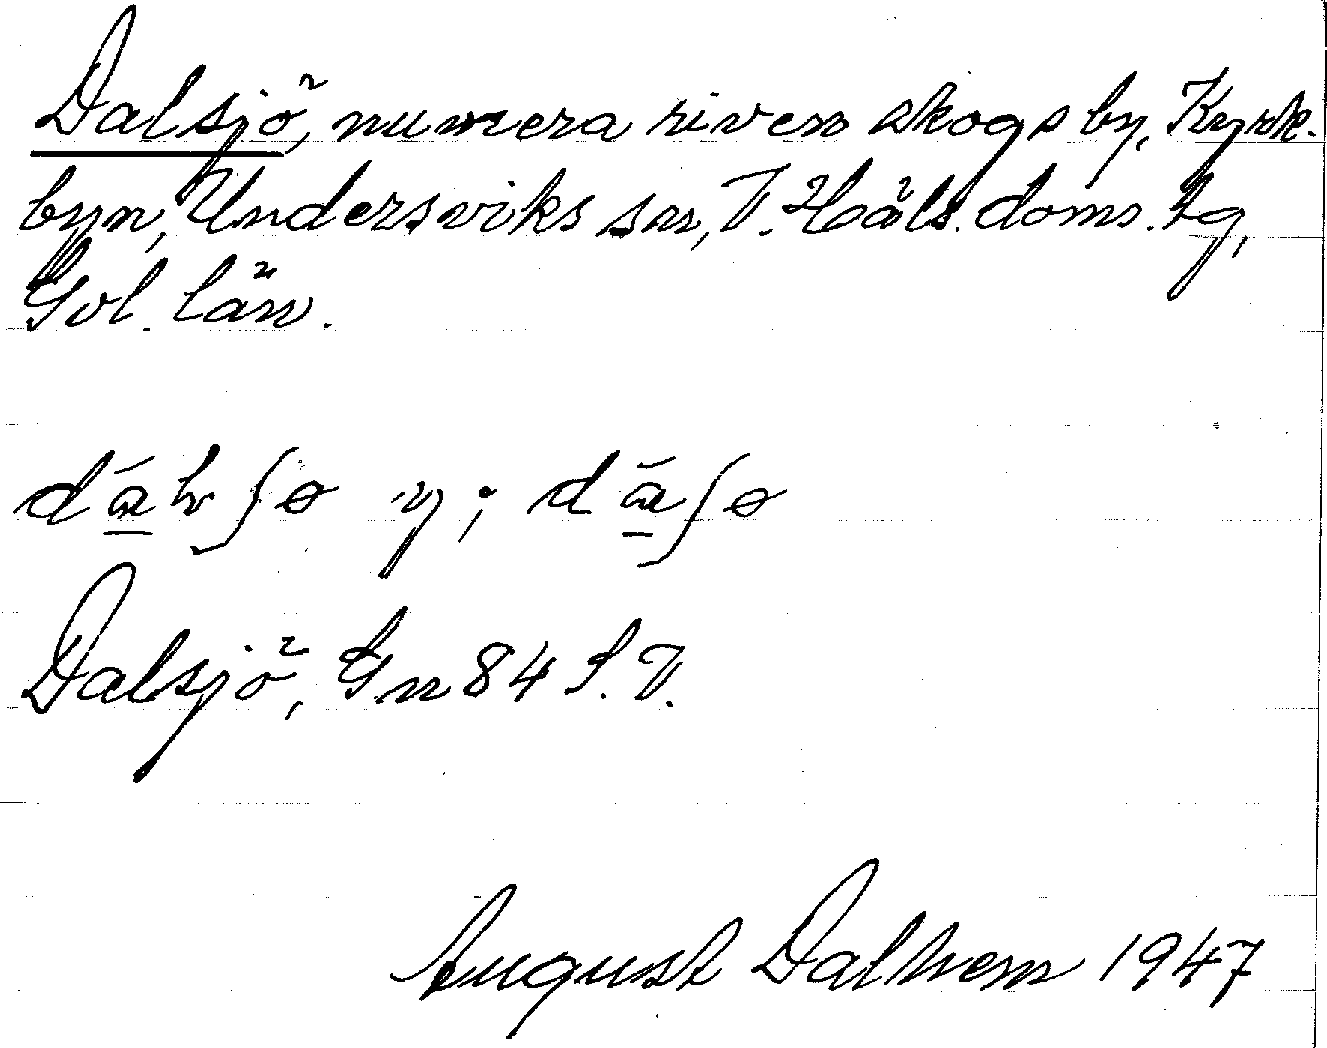 Dalsjö, numera riven skogsby, Kyrk-
byn, Undersviks sn, V. Häls. doms. tg,
Gvl. län.
Dalsjö, Gn 84 S.V.
August Dalhem 1947